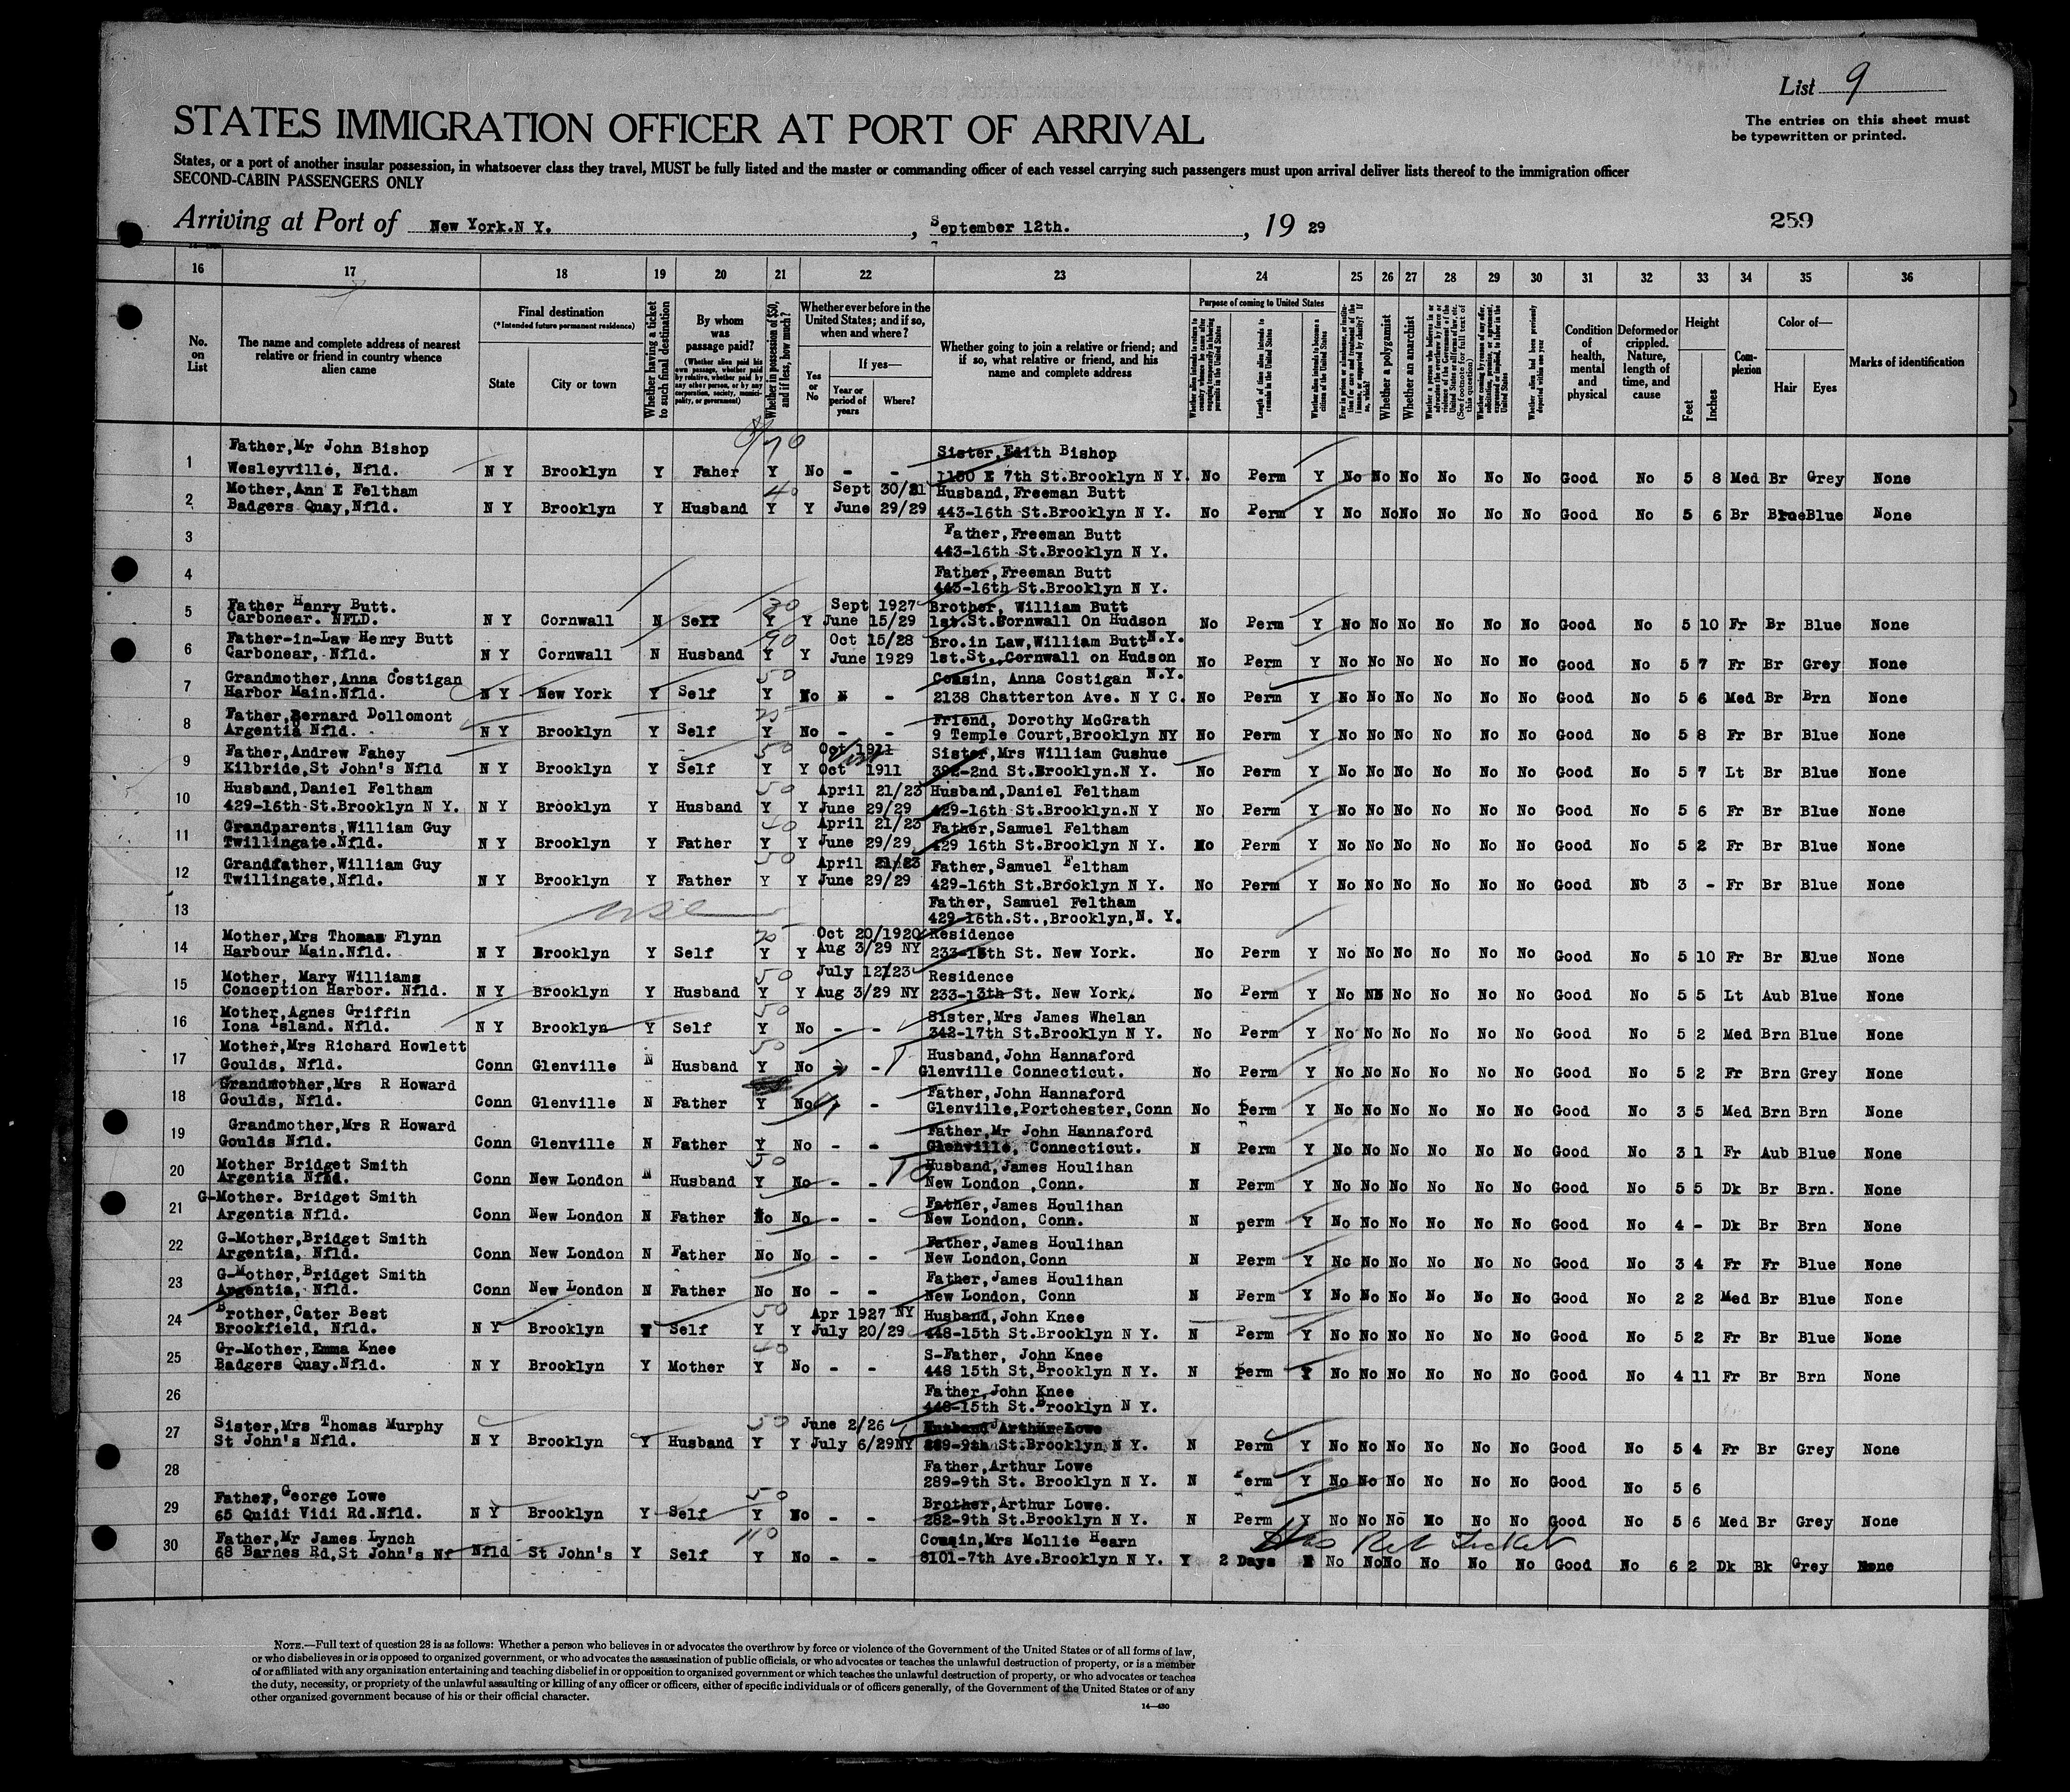 List 9
The entries on this sheet must
be typewritten or printed.
STATES IMMIGRATION OFFICER AT PORT OF ARRIVAL
States, or a port of another insular possession, in whatsoever class they travel, MUST be fully listed and the master or commanding officer of each vessel carrying such passengers must upon arrival deliver lists thereof to the immigration officer
SECOND-CABIN PASSENGERS ONLY
Arriving at Port of New York.N Y. , September 12th. , 19 29
259
16 17 18 19 20 21 22 23 24 25 26 27 28 29 30 31 32 33 34 35 36
No. on List
The name and complete address of nearest relative or friend in country whence alien came
Final destination
(*Intended future permanent residence)
State
City or town
Whether having a ticket to such final destination
By whom was passage paid?
(Whether alien paid his own passage, whether paid by relative, whether paid by any other person, or by any corporation, society, municipality, or government)
Whether in possession of $50, and if less, how much?
Whether ever before in the United States; and if so, when and where?
Yes or No
If yes—
Year or period of years
Where?
Whether going to join a relative or friend; and if so, what relative or friend, and his name and complete address
Purpose of coming to United States
Length of time alien intends to remain in the United States
Whether alien intends to become a citizen of the United States
Whether a polygamist
Whether an anarchist
Condition of health, mental and physical
Deformed or crippled. Nature, length of time, and cause
Height
Feet
Inches
Complexion
Color of—
Hair
Eyes
Marks of identification
1 Father,Mr John Bishop Sister,Edith Bishop
Wesleyville, Nfld. N Y Brooklyn Y Faher Y No - - 1150 E 7th St.Brooklyn N Y. No Perm Y No No No No No No Good No 5 8 Med Br Grey None
2 Mother,Ann E Feltham 40 Sept 30/21 Husband, Freeman Butt
Badgers Quay,Nfld. N Y Brooklyn Y Husband Y Y June 29/29 443-16th St.Brooklyn N Y. No Perm Y No No No No No No Good No 5 6 Br Blue None
3 Father,Freeman Butt
443-16th St.Brooklyn N Y.
4 Father,Freeman Butt
443-16th St.Brooklyn N Y.
5 Father Hanry Butt. 30 Sept 1927 Brother, William Butt
Carbonear. NFLD. N Y Cornwall N Self Y Y June 15/29 1st.St.Cornwall On Hudson No Perm Y No No No No No No Good No 5 10 Fr Br Blue None
6 Father-in-Law Henry Butt 90 Oct 15/28 Bro.in Law,William Butt N.Y.
Carbonear, Nfld. N Y Cornwall N Husband Y Y June 1929 1st.St.,Cornwall on Hudson No Perm Y No No No No No No Good No 5 7 Fr Br Grey None
7 Grandmother,Anna Costigan 50 Cousin, Anna Costigan N.Y.
Harbor Main.Nfld. N Y New York Y Self Y No - 2138 Chatterton Ave. N Y C. No Perm Y No No No No No No Good No 5 6 Med Br Brn None
8 Father,Bernard Dollomont 25 Friend, Dorothy McGrath
Argentia Nfld. N Y Brooklyn Y Self Y No - - 9 Temple Court,Brooklyn NY No Perm Y No No No No No No Good No 5 8 Fr Br Blue None
9 Father,Andrew Fahey 50 Oct 1911 Sister,Mrs William Gushue
Kilbride,St John's Nfld N Y Brooklyn Y Self Y Y Oct 1911 392-2nd St.Brooklyn.N Y. No Perm Y No No No No No No Good No 5 7 Lt Br Blue None
10 Husband,Daniel Feltham 50 April 21/23 Husband,Daniel Feltham
429-16th St.Brooklyn N Y. N Y Brooklyn Y Husband Y Y June 29/29 429-16th St.Brooklyn.N Y No Perm Y No No No No No No Good No 5 6 Fr Br Blue None
11 Grandparents,William Guy 40 April 21/23 Father,Samuel Feltham
Twillingate.Nfld. N Y Brooklyn Y Father Y Y June 29/29 429 16th St.Brooklyn N Y. No Perm Y No No No No No No Good No 5 2 Fr Br Blue None
12 Grandfather,William Guy 50 April 21/23 Father,Samuel Feltham
Twillingate,Nfld. N Y Brooklyn Y Father Y Y June 29/29 429-16th St.Brooklyn N Y. No Perm Y No No No No No No Good No 3 - Fr Br Blue None
13 Father, Samuel Feltham
429-16th.St.,Brooklyn,N. Y.
14 Mother,Mrs Thomas Flynn Oct 20/1920 Residence
Harbour Main.Nfld. N Y Brooklyn Y Self Y Y Aug 3/29 NY 233-13th St. New York. No Perm Y No No No No No No Good No 5 10 Fr Br Blue None
15 Mother, Mary Williams 50 July 12/23 Residence
Conception Harbor. Nfld. N Y Brooklyn Y Husband Y Y Aug 3/29 NY 233-13th St. New York. No Perm Y No No No No No No Good No 5 5 Lt Aub Blue None
16 Mother,Agnes Griffin 50 Sister,Mrs James Whelan
Iona Island. Nfld. N Y Brooklyn Y Self Y No - - 342-17th St.Brooklyn N Y. No Perm Y No No No No No No Good No 5 2 Med Brn Blue None
17 Mother,Mrs Richard Howlett 50 Husband, John Hannaford
Goulds, Nfld. Conn Glenville N Husband Y No - - Glenville Connecticut. No Perm Y No No No No No No Good No 5 2 Fr Brn Grey None
18 Grandmother,Mrs R Howard Father, John Hannaford
Goulds, Nfld. Conn Glenville N Father Y No - Glenville,Portchester,Conn No Perm Y No No No No No No Good No 3 5 Med Brn Brn None
19 Grandmother,Mrs R Howard Father,Mr John Hannaford
Goulds Nfld. Conn Glenville N Father Y No - - Glenville, Connecticut. N Perm Y No No No No No No Good No 3 1 Fr Aub Blue None
20 Mother Bridget Smith 50 Husband,James Houlihan
Argentia Nfld. Conn New London N Husband Y No - - New London ,Conn. N Perm Y No No No No No No Good No 5 5 Dk Br Brn. None
21 G-Mother. Bridget Smith Father,James Houlihan
Argentia Nfld. Conn New London N Father No No - - New London, Conn. N perm Y No No No No No No Good No 4 - Dk Br Brn None
22 G-Mother,Bridget Smith Father,James Houlihan
Argentia, Nfld. Conn New London N Father No No - - New London,Conn N Perm Y No No No No No No Good No 3 4 Fr Fr Blue None
23 G-Mother,Bridget Smith Father,James Houlihan
Argentia, Nfld. Conn New London N Father No No - - New London, Conn N Perm Y No No No No No No Good No 2 2 Med Br Blue None
24 Brother,Cater Best 50 Apr 1927 NY Husband,John Knee
Brookfield, Nfld. N Y Brooklyn Y Self Y Y July 20/29 448-15th St.Brooklyn N Y. N Perm Y No No No No No No Good No 5 2 Fr Br Blue None
25 Gr-Mother,Emma Knee 40 S-Father, John Knee
Badgers Quay.Nfld. N Y Brooklyn Y Mother Y No - - 448 15th St,Brooklyn N Y. N Perm Y No No No No No No Good No 4 11 Fr Br Brn None
26 Father,John Knee
448-15th St.Brooklyn N Y.
27 Sister,Mrs Thomas Murphy 50 June 2/26 Husband Arthur Lowe
St John's Nfld. N Y Brooklyn Y Husband Y Y July 6/29NY 289-9th St.Brooklyn N Y. N Perm Y No No No No No No Good No 5 4 Fr Br Grey None
28 Father,Arthur Lowe
289-9th St. Brooklyn N Y. N Perm Y No No No No No No Good No 5 6
29 Father,George Lowe 50 Brother,Arthur Lowe.
65 Quidi Vidi Rd.Nfld. N Y Brooklyn Y Self Y No - - 282-9th St.Brooklyn N Y. N Perm Y No No No No No No Good No 5 6 Med Br Grey None
30 Father,Mr James Lynch 110 Cousin,Mrs Mollie Hearn Has Ret Ticket
68 Barnes Rd,St John's Nf Nfld St John's Y Self Y No - - 8101-7th Ave.Brooklyn N Y. Y 2 Days N No No No No No No Good No 6 2 Dk Bk Grey None
NOTE.—Full text of question 28 is as follows: Whether a person who believes in or advocates the overthrow by force or violence of the Government of the United States or of all forms of law,
or who disbelieves in or is opposed to organized government, or who advocates the assassination of public officials, or who advocates or teaches the unlawful destruction of property, or is a member
of or affiliated with any organization entertaining and teaching disbelief in or opposition to organized government or which teaches the unlawful destruction of property, or who advocates or teaches
the duty, necessity, or propriety of the unlawful assaulting or killing of any officer or officers, either of specific individuals or of officers generally, of the Government of the United States or of any
other organized government because of his or their official character.
14—430